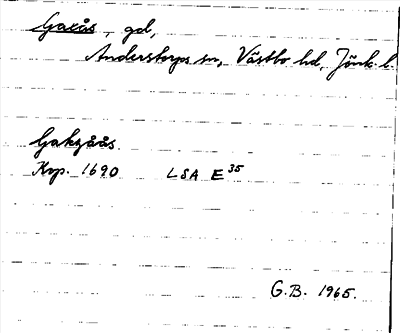 Gaxås, gd,
Anderstorps sn, Västbo hd, Jönk. l.
Gakzåås.
Krp. 1690 LSA E 35
G.B. 1965.